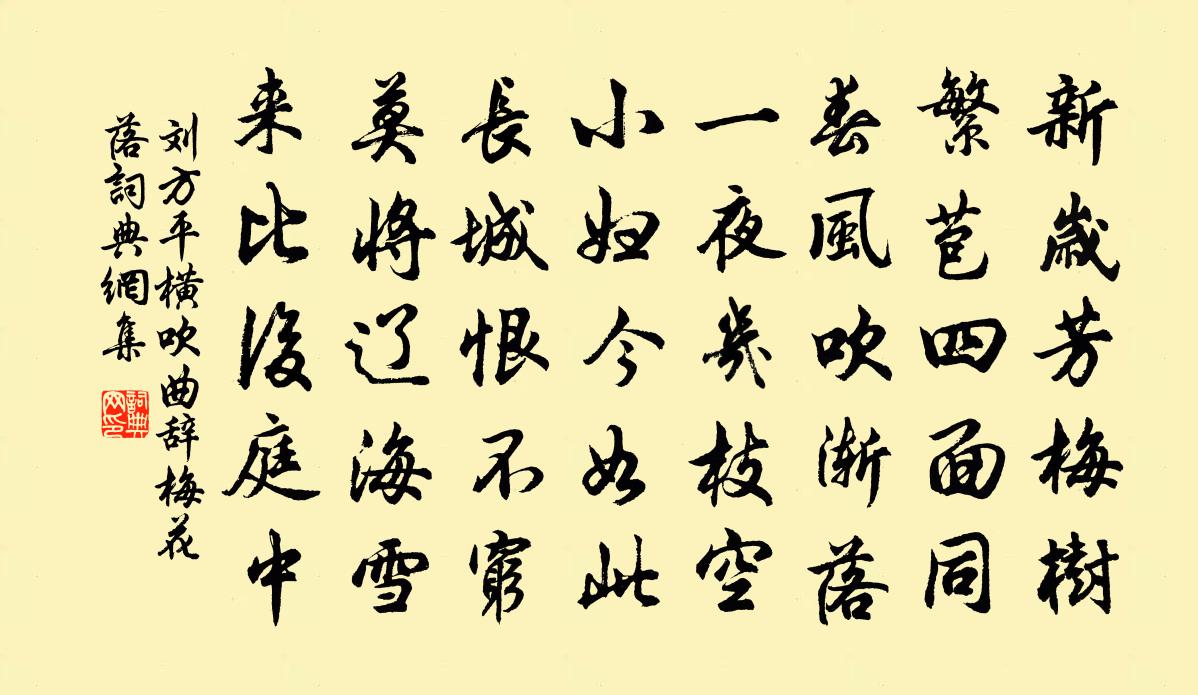 新歲芳梅樹
繁苞四面同
春風吹漸落
一夜幾枝空
小妇今如此
長城恨不窮
莫將辽海雪
来比後庭中
刘方平横吹曲辞梅花
落詞典網集
詞典网印